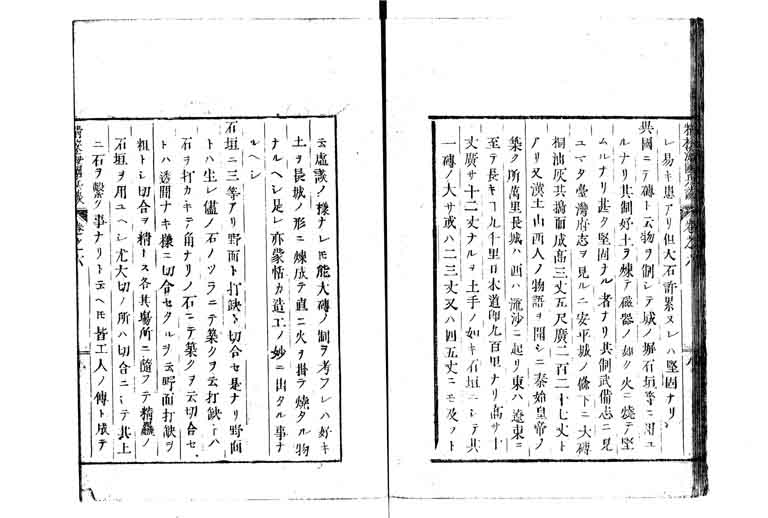 レ易キ患アリ但大石許累ヌレハ堅固ナリ
異國ニテ磚ト云物ヲ制シテ城ノ塀石垣等ニ用ユ
ルナリ其制好土ヲ煉テ磁器ノ如ク火ニ燒テ堅
ムルナリ甚タ堅固ナル者ナリ其制武備志ニ見
ユマタ臺灣府志ヲ見ルニ安平城ノ條下ニ大磚
桐油灰共擣而成高三丈五尺廣二百二十七丈ト
アリ又漢土山西人ノ物語ヲ聞シニ秦始皇帝ノ
築ク所萬里長城ハ西ハ流沙ニ起リ東ハ遼東ニ
至テ長キ九千里日本道即九百里ナリ高サ十
丈廣サ十二丈ナルヲ土手ノ如キ石垣ニシテ其
一磚ノ大サ或ハ二三丈又ハ四五丈ニモ及フト
云虛談ノ樣ナレモ能大磚ノ制ヲ考フレハ好キ
土ヲ長城ノ形ニ煉成テ直ニ火ヲ掛テ燒タル物
ナルヘシ是レ亦蒙恬カ造工ノ妙ニ出タル事ナ
ルヘシ
石垣ニ三等アリ野面ト打缺ト切合セ是ナリ野面
トハ生レ儘ノ石ノツラニテ築クヲ云打缺トハ
石ヲ打カキテ角ナリノ石ニテ築クヲ云切合セ
トハ透間ナキ樣ニ切合セタルヲ云野面打缺ヲ
粗トシ切合ヲ精トス各其場所ニ隨フテ精麤ノ
石垣ヲ用ユヘシ尤大切ノ所ハ切合ニシテ其上
ニ石ヲ繫ク事ナリト云ヘモ皆工人ノ傳ト成テ
精校海國兵談 卷之六